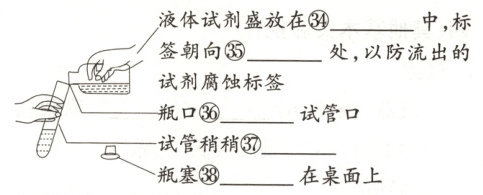 液体试剂盛放在㉞________中,标
签朝向㉟________处,以防流出的
试剂腐蚀标签
瓶口㊱________试管口
试管稍稍㊲________
瓶塞㊳________在桌面上